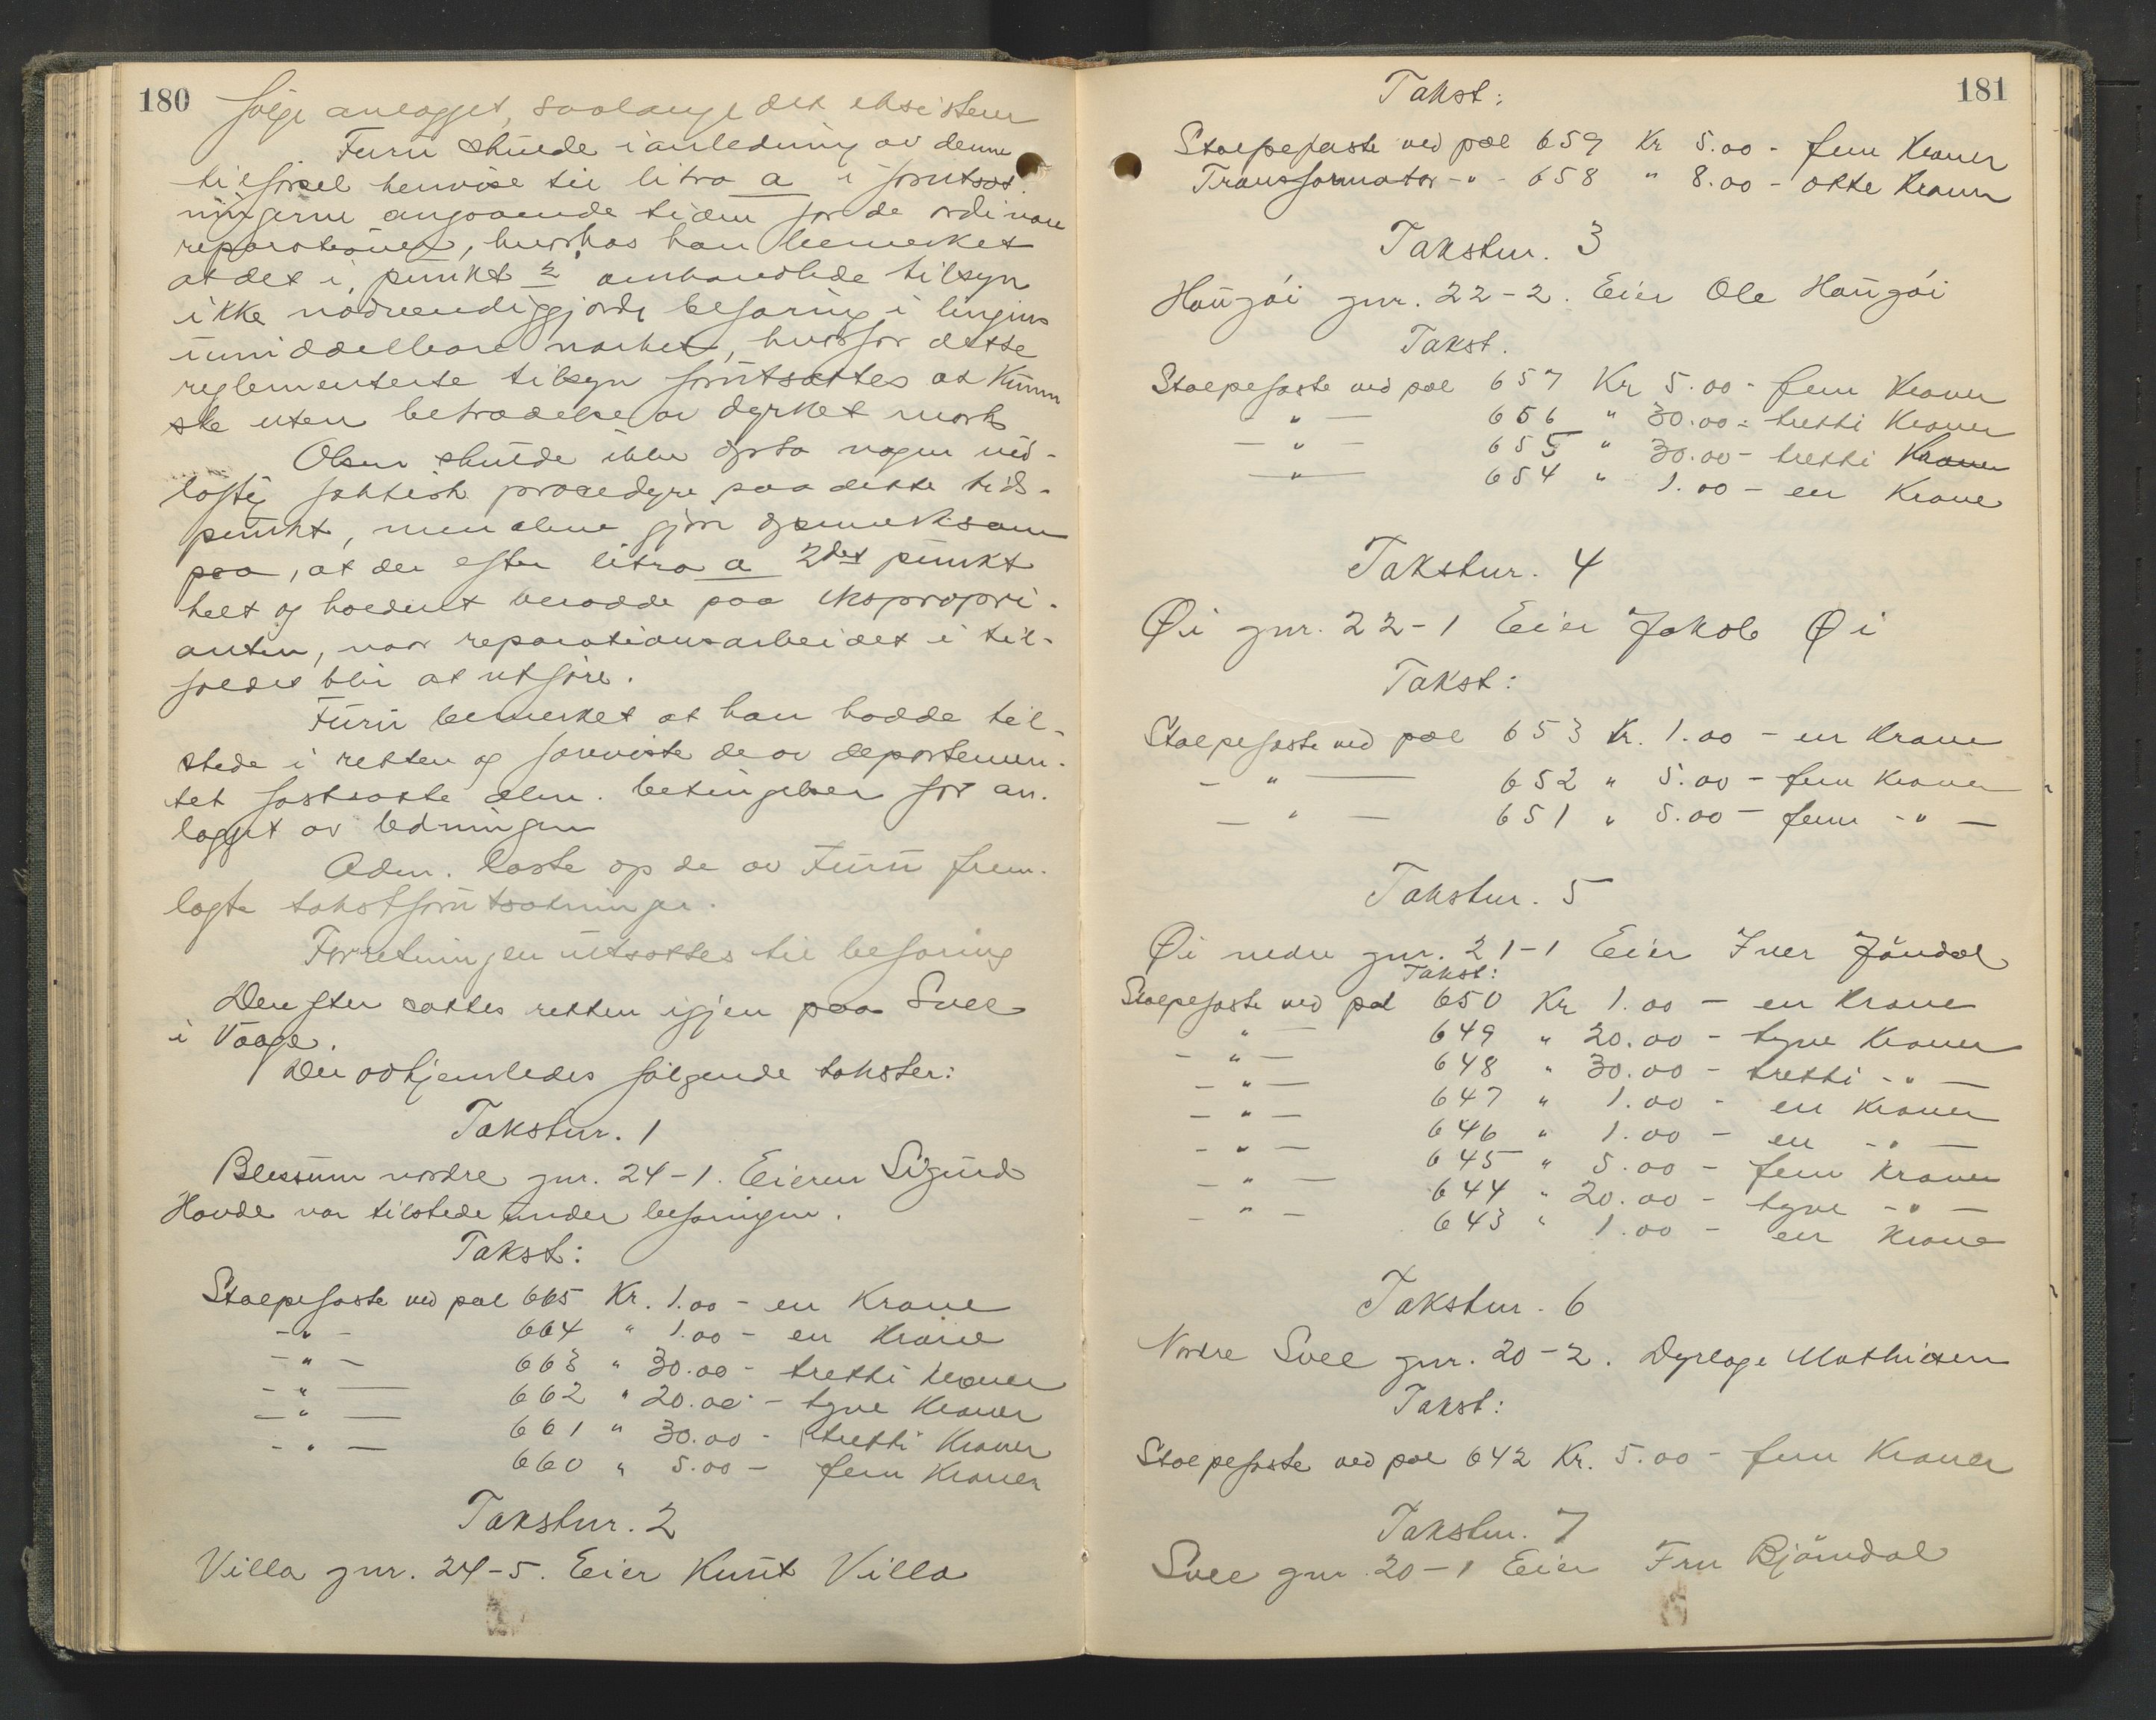 180
følge anlægget, saalænge det eksisterer
Furu skulde i anledning av denne
tilførsel henvise til litra a i forutsæt-
ningerne angaaende tiden for de ordinære
reparationer, hvorhos han bemerket
at det i punkt 2 omhandlede tilsyn
ikke nødvendiggjorde befaring i linjens
umiddelbare nærhet, hvorfor dette
reglementerte tilsyn forutsættes at kunne
ske uten betrædelse av dyrket mark
Olsen skulde ikke opta nogen vid-
løftig faktisk procedyre paa dette tids-
punkt, men alene gjøre opmerksom
paa, at der efter litra a 2det punkt
helt og holdent beradde paa ekspropri-
anten, naar reparationsarbeidet i til-
fældet blir at utføre.
Furu bemerket at han hadde til-
stede i retten og foreviste de av departemen-
tet fastsatte alm. betingelser for an-
lægget av ledningen
Adm. læste op de av Furu frem-
lagte takstforutsætninger.
Forretningen utsattes til befaring
Derefter sattes retten igjen paa Svee
i Vaage.
Der avhjemledes følgende takster:
Takstnr. 1
Blessum nordre gnr. 24-1. Eieren Sigurd
Hovde var tilstede under befaringen.
Takst:
Stolpefæste ved pæl 665 Kr. 1.00 - en Krone
- " - 664 " 1.00 - en Krone
- " - 663 " 30.00 - tretti kroner
- " - 662 " 20.00 - tyve Kroner
- " - 661 " 30.00 - tretti Kroner
- " - 660 " 5.00 - fem Kroner
Takstnr. 2
Villa gnr. 24-5. Eier Knut Villa
181
Takst:
Stolpefæste ved pæl 659 Kr 5.00 - fem Kroner
Transformator - " - 658 " 8.00 - otte Kroner
Takstnr. 3
Haugøi gnr. 22-2. Eier Ole Haugøi
Takst.
Stolpefæste ved pæl 657 Kr 5.00 - fem Kroner
- " - 656 " 30.00 - tretti Kroner
- " - 655 " 30.00 - tretti Kroner
- " - 654 " 1.00 - en Krone
Takstnr. 4
Øi gnr. 22-1 Eier Jakob Øi
Takst:
Stolpefæste ved pæl 653 Kr. 1.00 - en Krone
- " - 652 " 5.00 - fem Kroner
- " - 651 " 5.00 - fem - " -
Takstnr. 5
Øi nedre gnr. 21-1 Eier Iver Jöndal
Takst:
Stolpefæste ved pæl 650 Kr 1.00 - en Krone
- " - 649 " 20.00 - tyve Kroner
- " - 648 " 30.00 - tretti - " -
- " - 647 " 1.00 - en Kroner
- " - 646 " 1.00 - en - " -
- " - 645 " 5.00 - fem Kroner
- " - 644 " 20.00 - tyve - " -
- " - 643 " 1.00 - en Krone
Takstnr. 6
Nordre Svee gnr. 20-2. Dyrlæge Mathiesen
Takst:
Stolpefæste ved pæl 642 Kr. 5.00 - fem Kroner
Takstnr. 7
Svee gnr. 20-1 Eier Fru Bjömdal